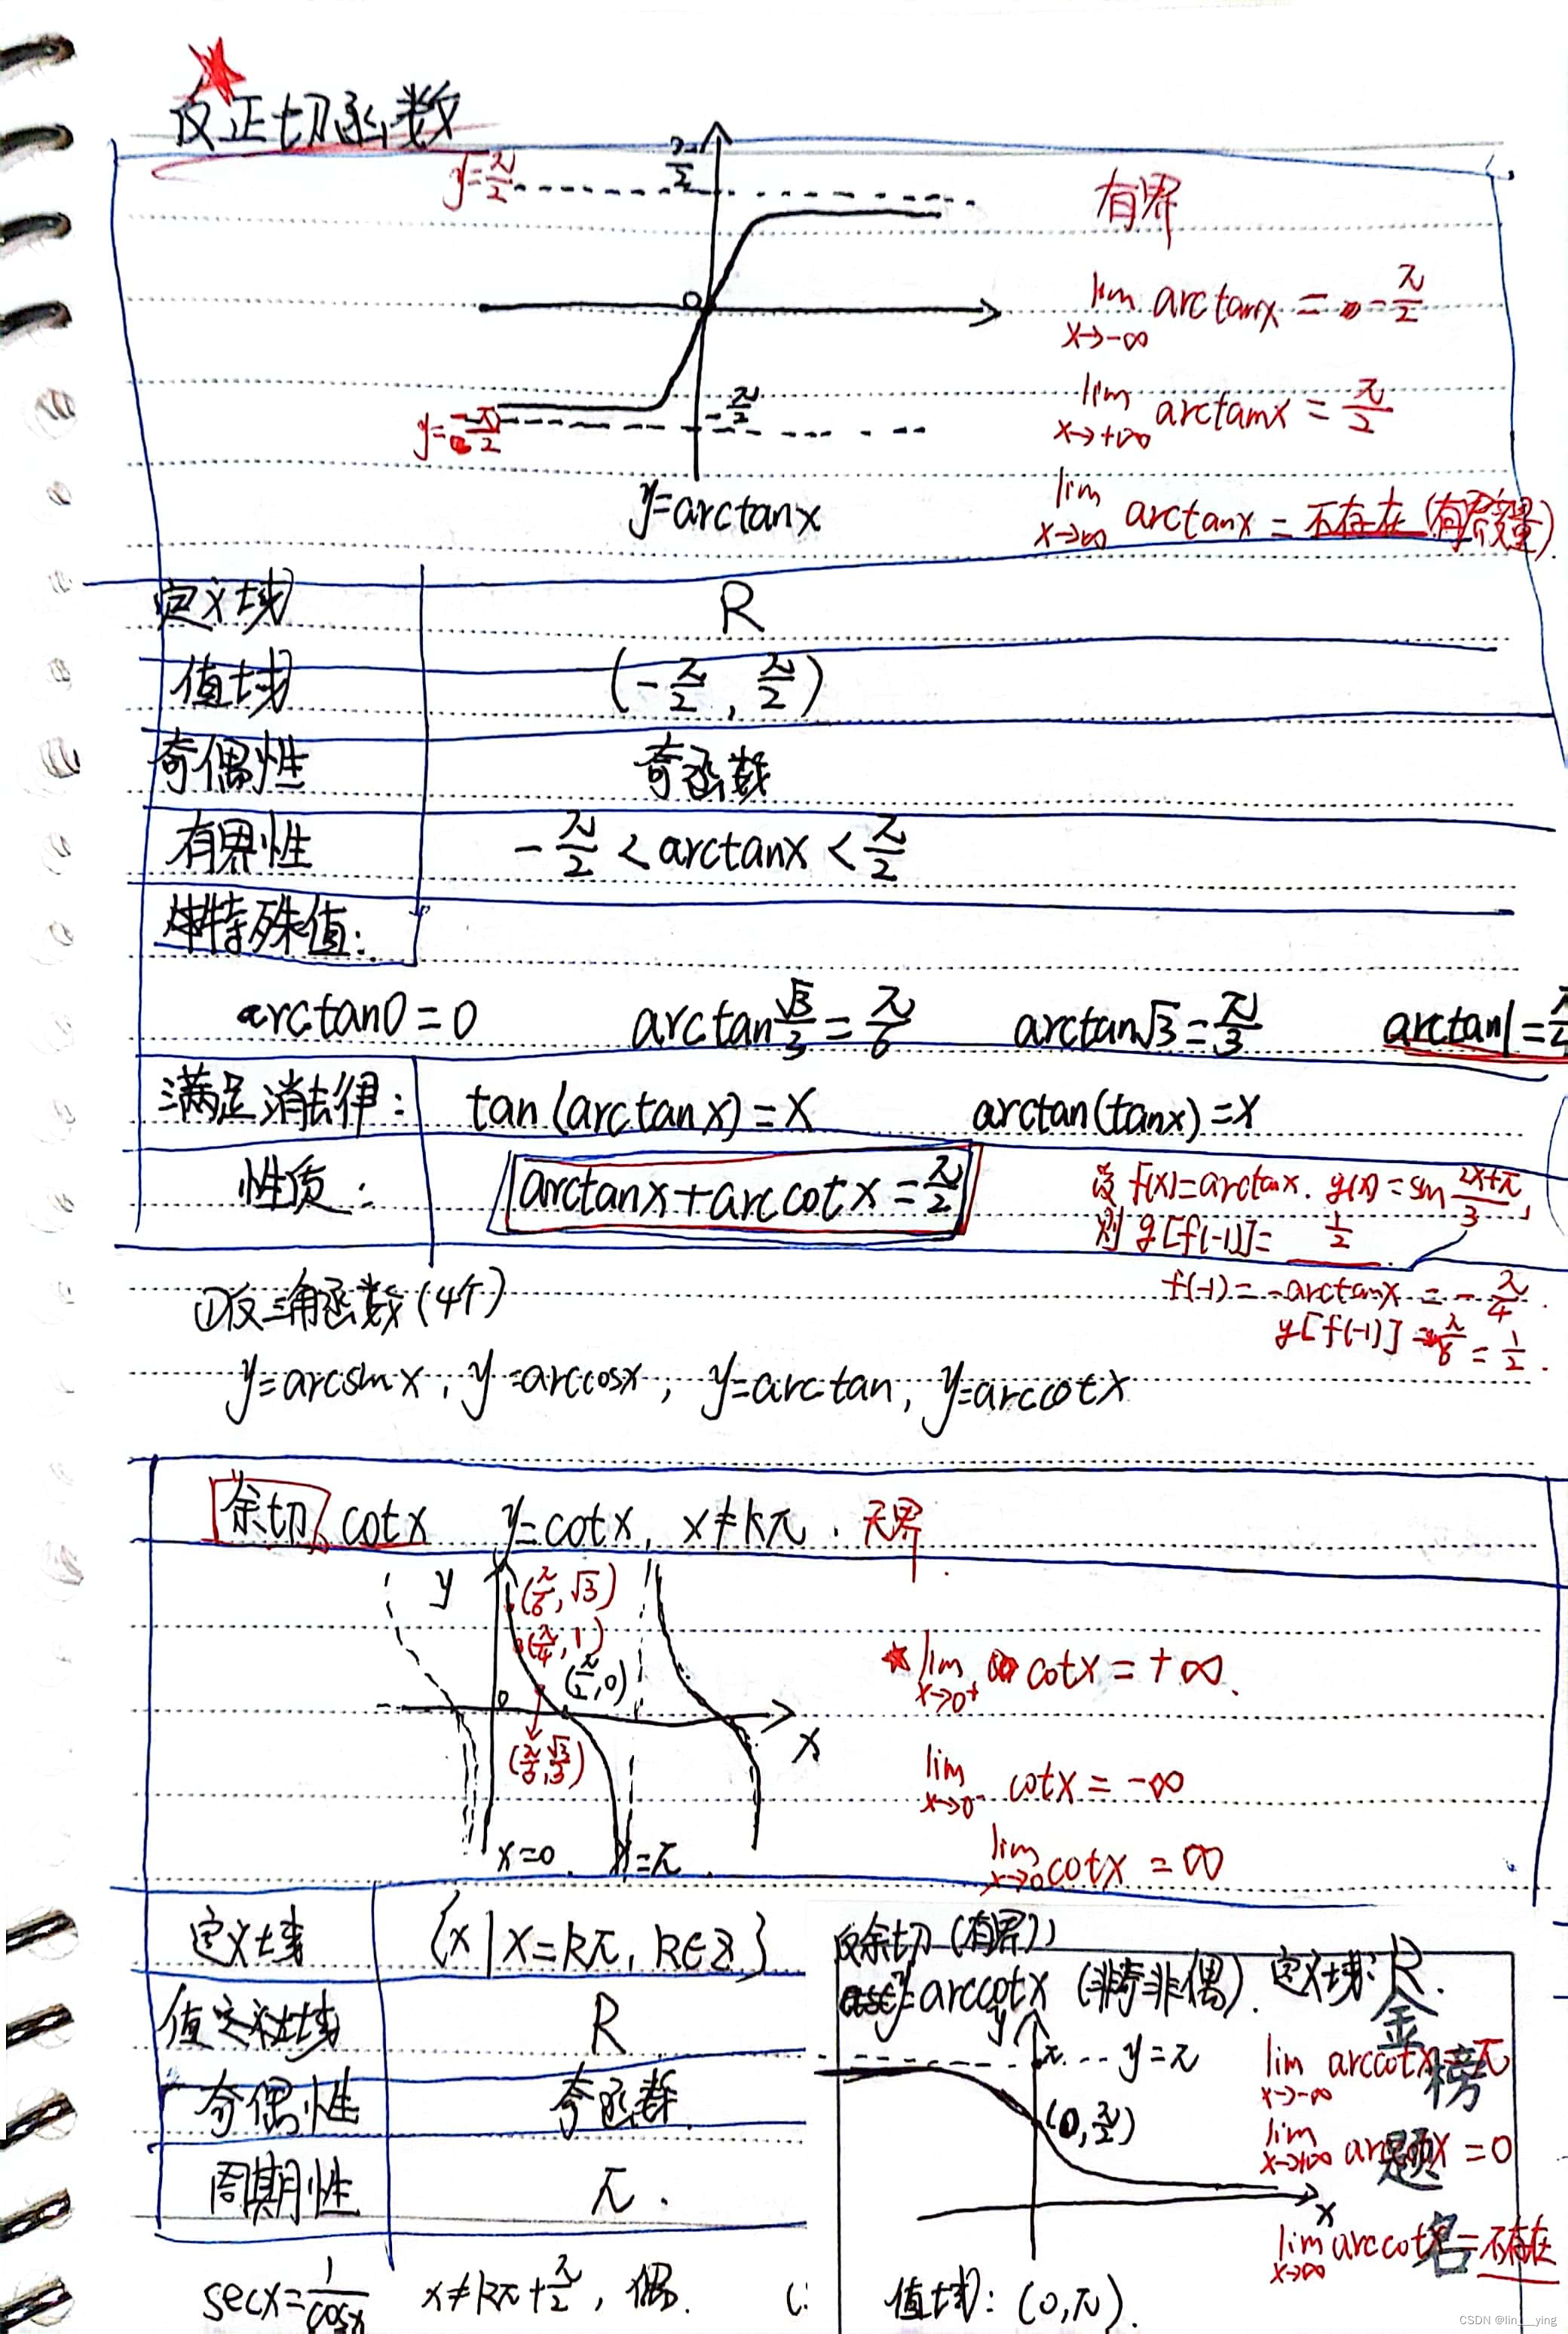 反正切函数
y=π/2
π/2
有界
lim x→-∞ arctanx = -π/2
O
lim x→+∞ arctanx = π/2
y=-π/2
-π/2
y=arctanx
lim x→∞ arctanx = 不存在 (有界变量).
定义域 R
值域 (-π/2, π/2)
奇偶性 奇函数
有界性 -π/2 < arctanx < π/2
特殊值:
arctan0=0 arctan√3/3=π/6 arctan√3=π/3 arctan1=π/4
满足消去律: tan(arctanx)=x arctan(tanx)=x
性质: arctanx+arccotx=π/2
设 f(x)=arctanx. g(x)=sin (2x+π)/3,
则 g[f(-1)]= 1/2
f(-1)=-arctanx=-π/4.
g[f(-1)]=π/6=1/2.
①反三角函数(4个)
y=arcsinx, y=arccosx, y=arctan, y=arccotx
余切 cotx y=cotx, x≠kπ. 无界
y
(π/6,√3)
(π/4,1)
(π/2,0)
lim x→0⁺ cotx=+∞.
0
x
(π/3,√3/3)
lim x→0⁻ cotx=-∞
x=0 x=π
lim x→0 cotx=∞
定义域 {x|x=kπ, k∈Z}
值域 R
奇偶性 奇函数
周期性 π.
secx=1/cosx x≠kπ+π/2, 偶.
反余切(有界)
y=arccotx (非奇非偶). 定义域:R.
y
π y=π
lim x→-∞ arccotx=π
(0,π/2)
lim x→+∞ arccotx=0
x
lim x→∞ arccotx=不存在
值域: (0,π).
金
榜
题
名
CSDN @lin__ying